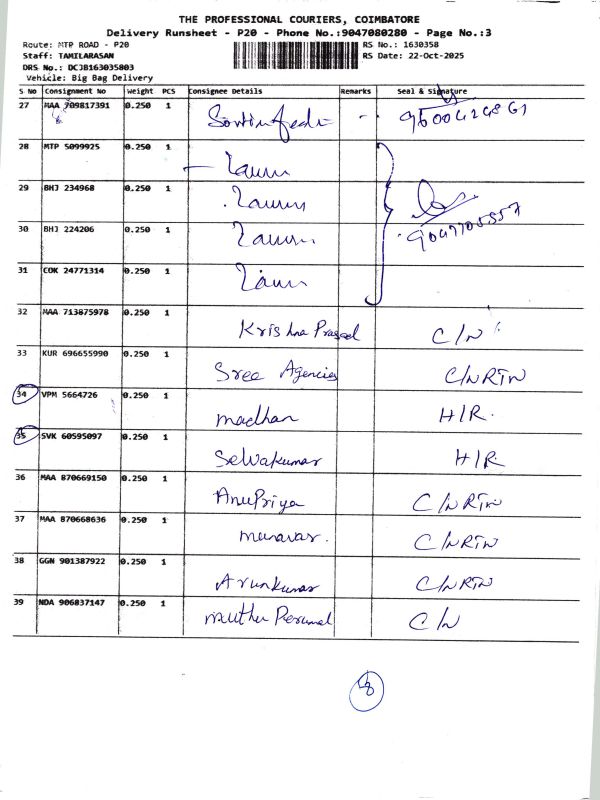 THE PROFESSIONAL COURIERS, COIMBATORE
Delivery Runsheet - P20 - Phone No.:9047080280 - Page No.:3
Route: MTP ROAD - P20 RS No.: 1630358
Staff: TAMILARASAN RS Date: 22-Oct-2025
DRS No.: DCJB163035803
Vehicle: Big Bag Delivery
S No Consignment No Weight PCS Consignee Details Remarks Seal & Signature
27 MAA 709817391 0.250 1
28 MTP 5099925 0.250 1
29 BHJ 234968 0.250 1
30 BHJ 224206 0.250 1 9047705557
31 COK 24771314 0.250 1
32 MAA 713875978 0.250 1 Krishna Prasad C/N
33 KUR 696655990 0.250 1 Sree Agencies C/NRTN
34 VPM 5664726 0.250 1 madhan H/R.
35 SVK 60595097 0.250 1 Selvakumar H/R
36 MAA 870669150 0.250 1 AnuPriya C/NRTN
37 MAA 870668636 0.250 1 munavar. C/NRTN
38 GGN 901387922 0.250 1 Arunkumar C/NRTN
39 NDA 906837147 0.250 1 muthu Perumal C/N